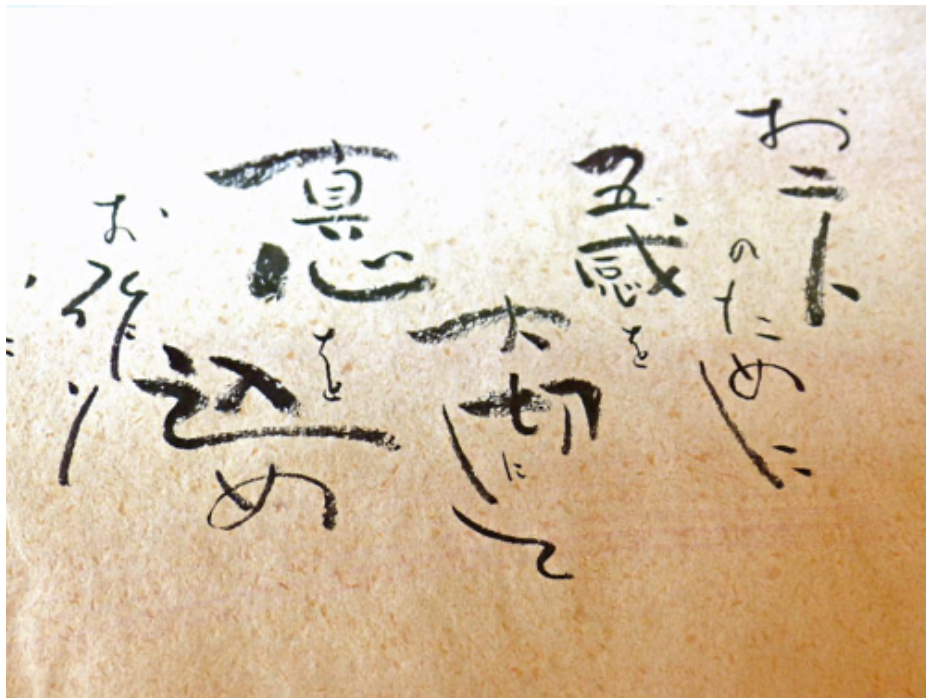 お二人
のために
五感を
大切にして
真心を
込め
お作り